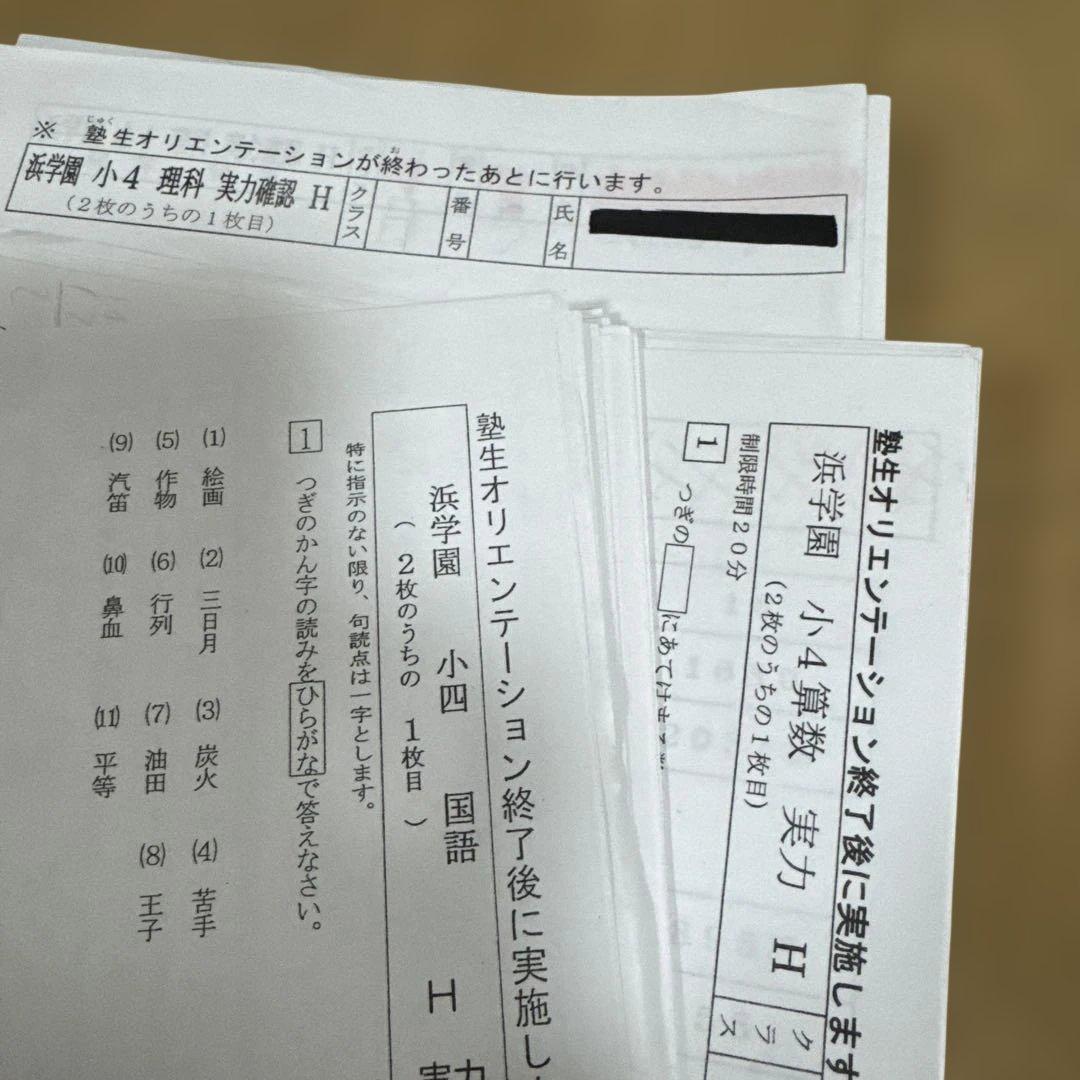 ※ 塾生オリエンテーションが終わったあとに行います。
じゅく
お
浜学園 小4 理科 実力確認 H
(2枚のうちの1枚目)
クラス
番号
氏名
塾生オリエンテーション終了後に実施し
浜学園 小四 国語 H 実力
(2枚のうちの 1枚目)
特に指示のない限り、句読点は一字とします。
1 つぎのかん字の読みをひらがなで答えなさい。
(1) 絵画 (2) 三日月 (3) 炭火 (4) 苦手
(5) 作物 (6) 行列 (7) 油田 (8) 王子
(9) 汽笛 (10) 鼻血 (11) 平等
塾生オリエンテーション終了後に実施します
浜学園 小4算数 実力 H
(2枚のうちの1枚目)
クラス
制限時間20分
1 つぎの□にあてはま